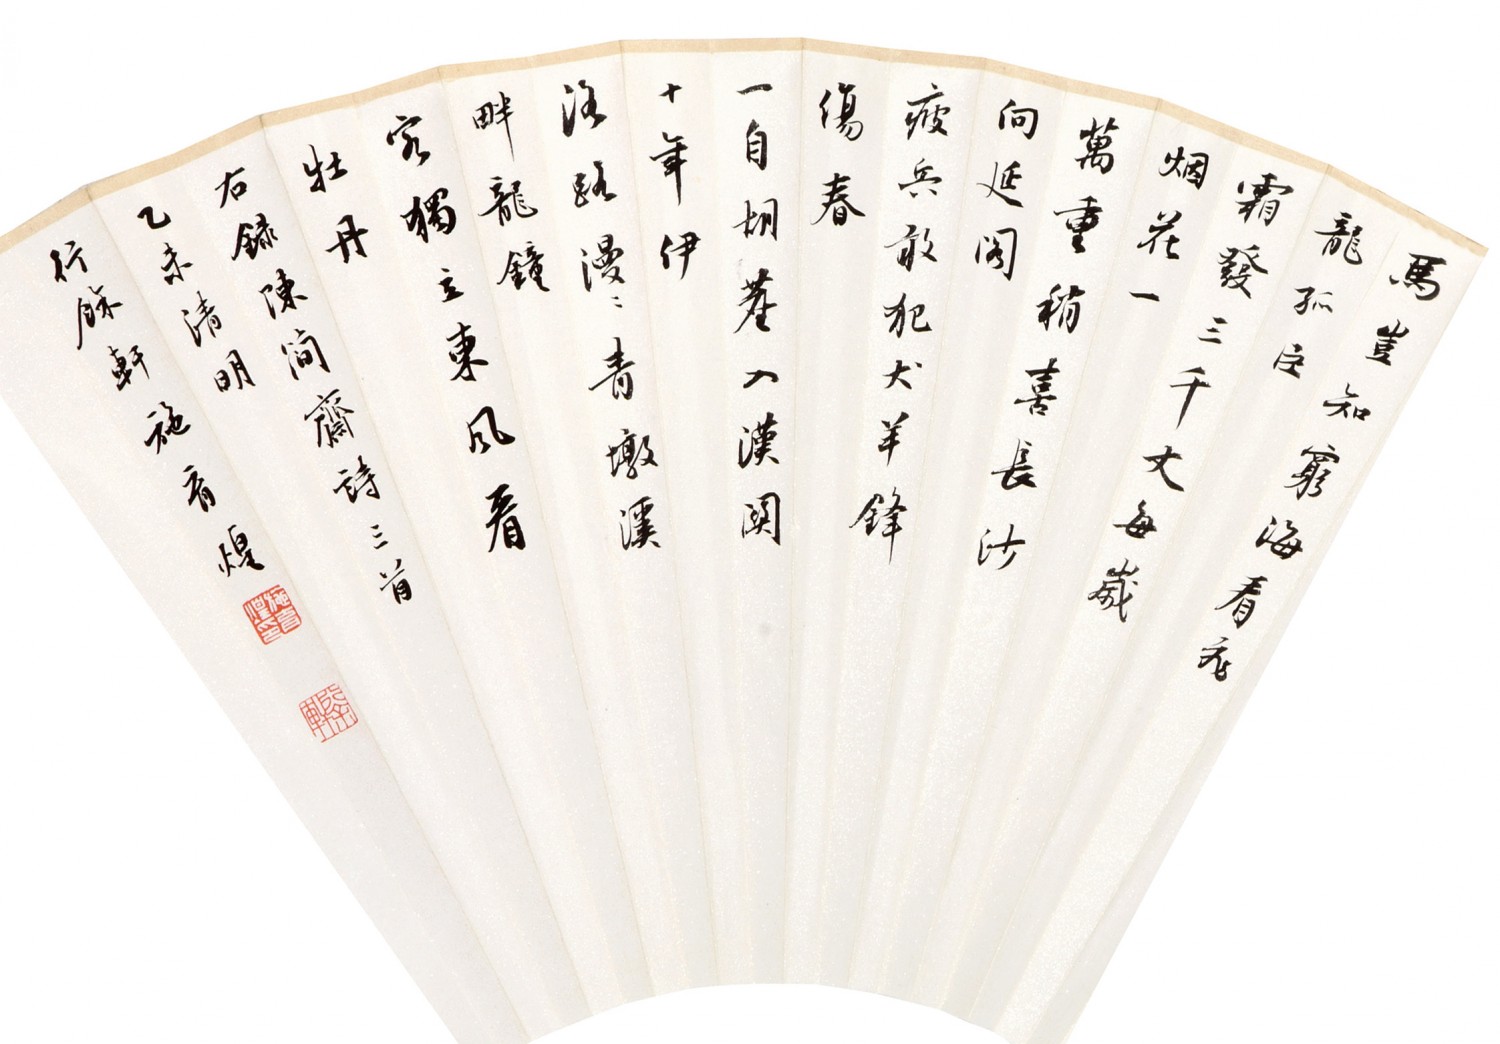 馬豈知窮海看飛
龍孤臣
霜發三千丈每歲
烟花一
萬重稍喜長沙
向延閣
疲兵敢犯犬羊鋒
傷春
一自胡塵入漢關
十年伊
洛路漫〻青墩溪
畔龍鐘
客獨立東風看
牡丹
右錄陳簡齋詩三首
乙未清明
行餘軒施育煌